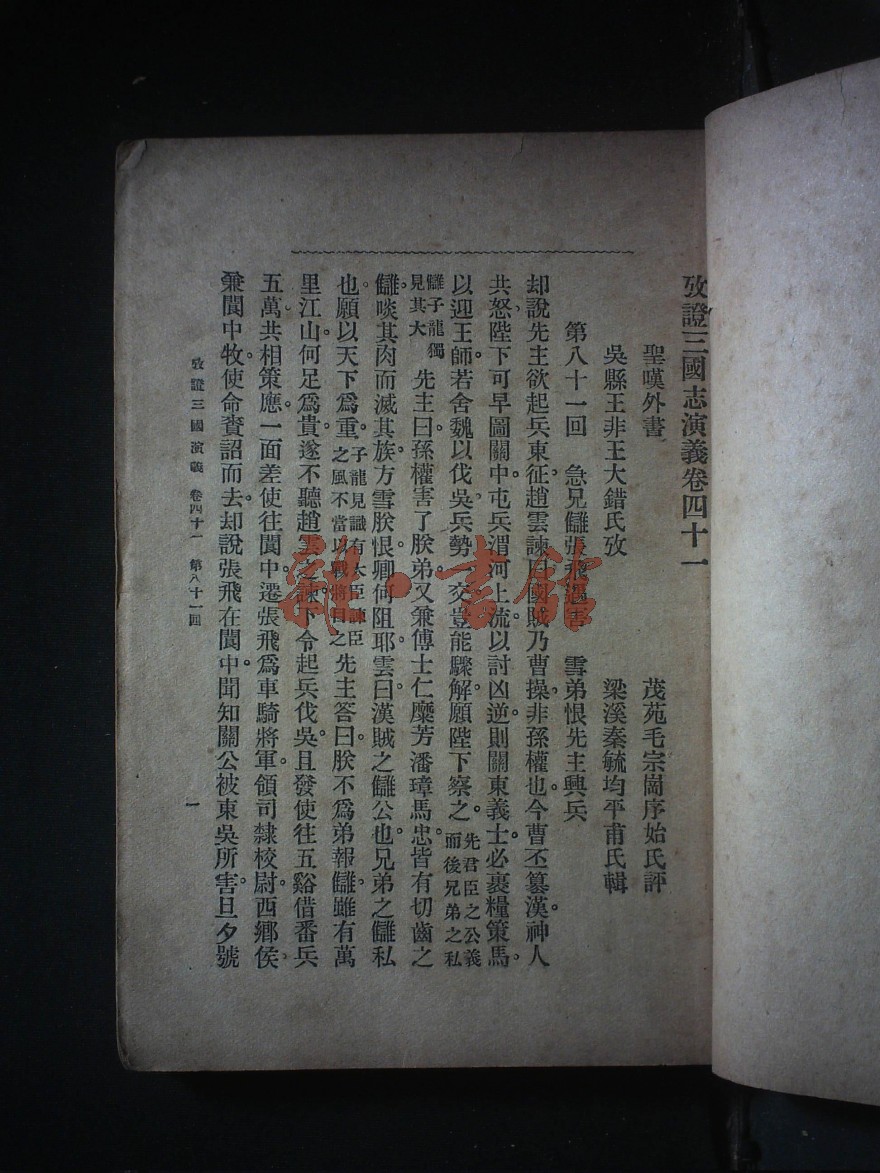 攷證三國志演義卷四十一
聖嘆外書　茂苑毛宗崗序始氏評
吳縣王非王大錯氏攷　梁溪秦毓均平甫氏輯
第八十一回　急兄讎張飛遇害　雪弟恨先主興兵
却說先主欲起兵東征趙雲諫曰國賊乃曹操非孫權也今曹丕篡漢神人
共怒陛下可早圖關中屯兵渭河上流以討凶逆則關東義士必裹糧策馬
以迎王師若舍魏以伐吳兵勢一交豈能驟解願陛下察之先君臣之公義而後兄弟之私
讎子龍獨見其大先主曰孫權害了朕弟又兼傅士仁糜芳潘璋馬忠皆有切齒之
讎啖其肉而滅其族方雪朕恨卿何阻耶雲曰漢賊之讎公也兄弟之讎私
也願以天下爲重子龍見識有大臣諫臣之風不當以戰將目之先主答曰朕不爲弟報讎雖有萬
里江山何足爲貴遂不聽趙雲之諫下令起兵伐吳且發使往五谿借番兵
五萬共相策應一面差使往閬中遷張飛爲車騎將軍領司隸校尉西鄉侯
兼閬中牧使命賫詔而去却說張飛在閬中聞知關公被東吳所害旦夕號
攷證三國演義　卷四十一　第八十一回　一
雜·書館